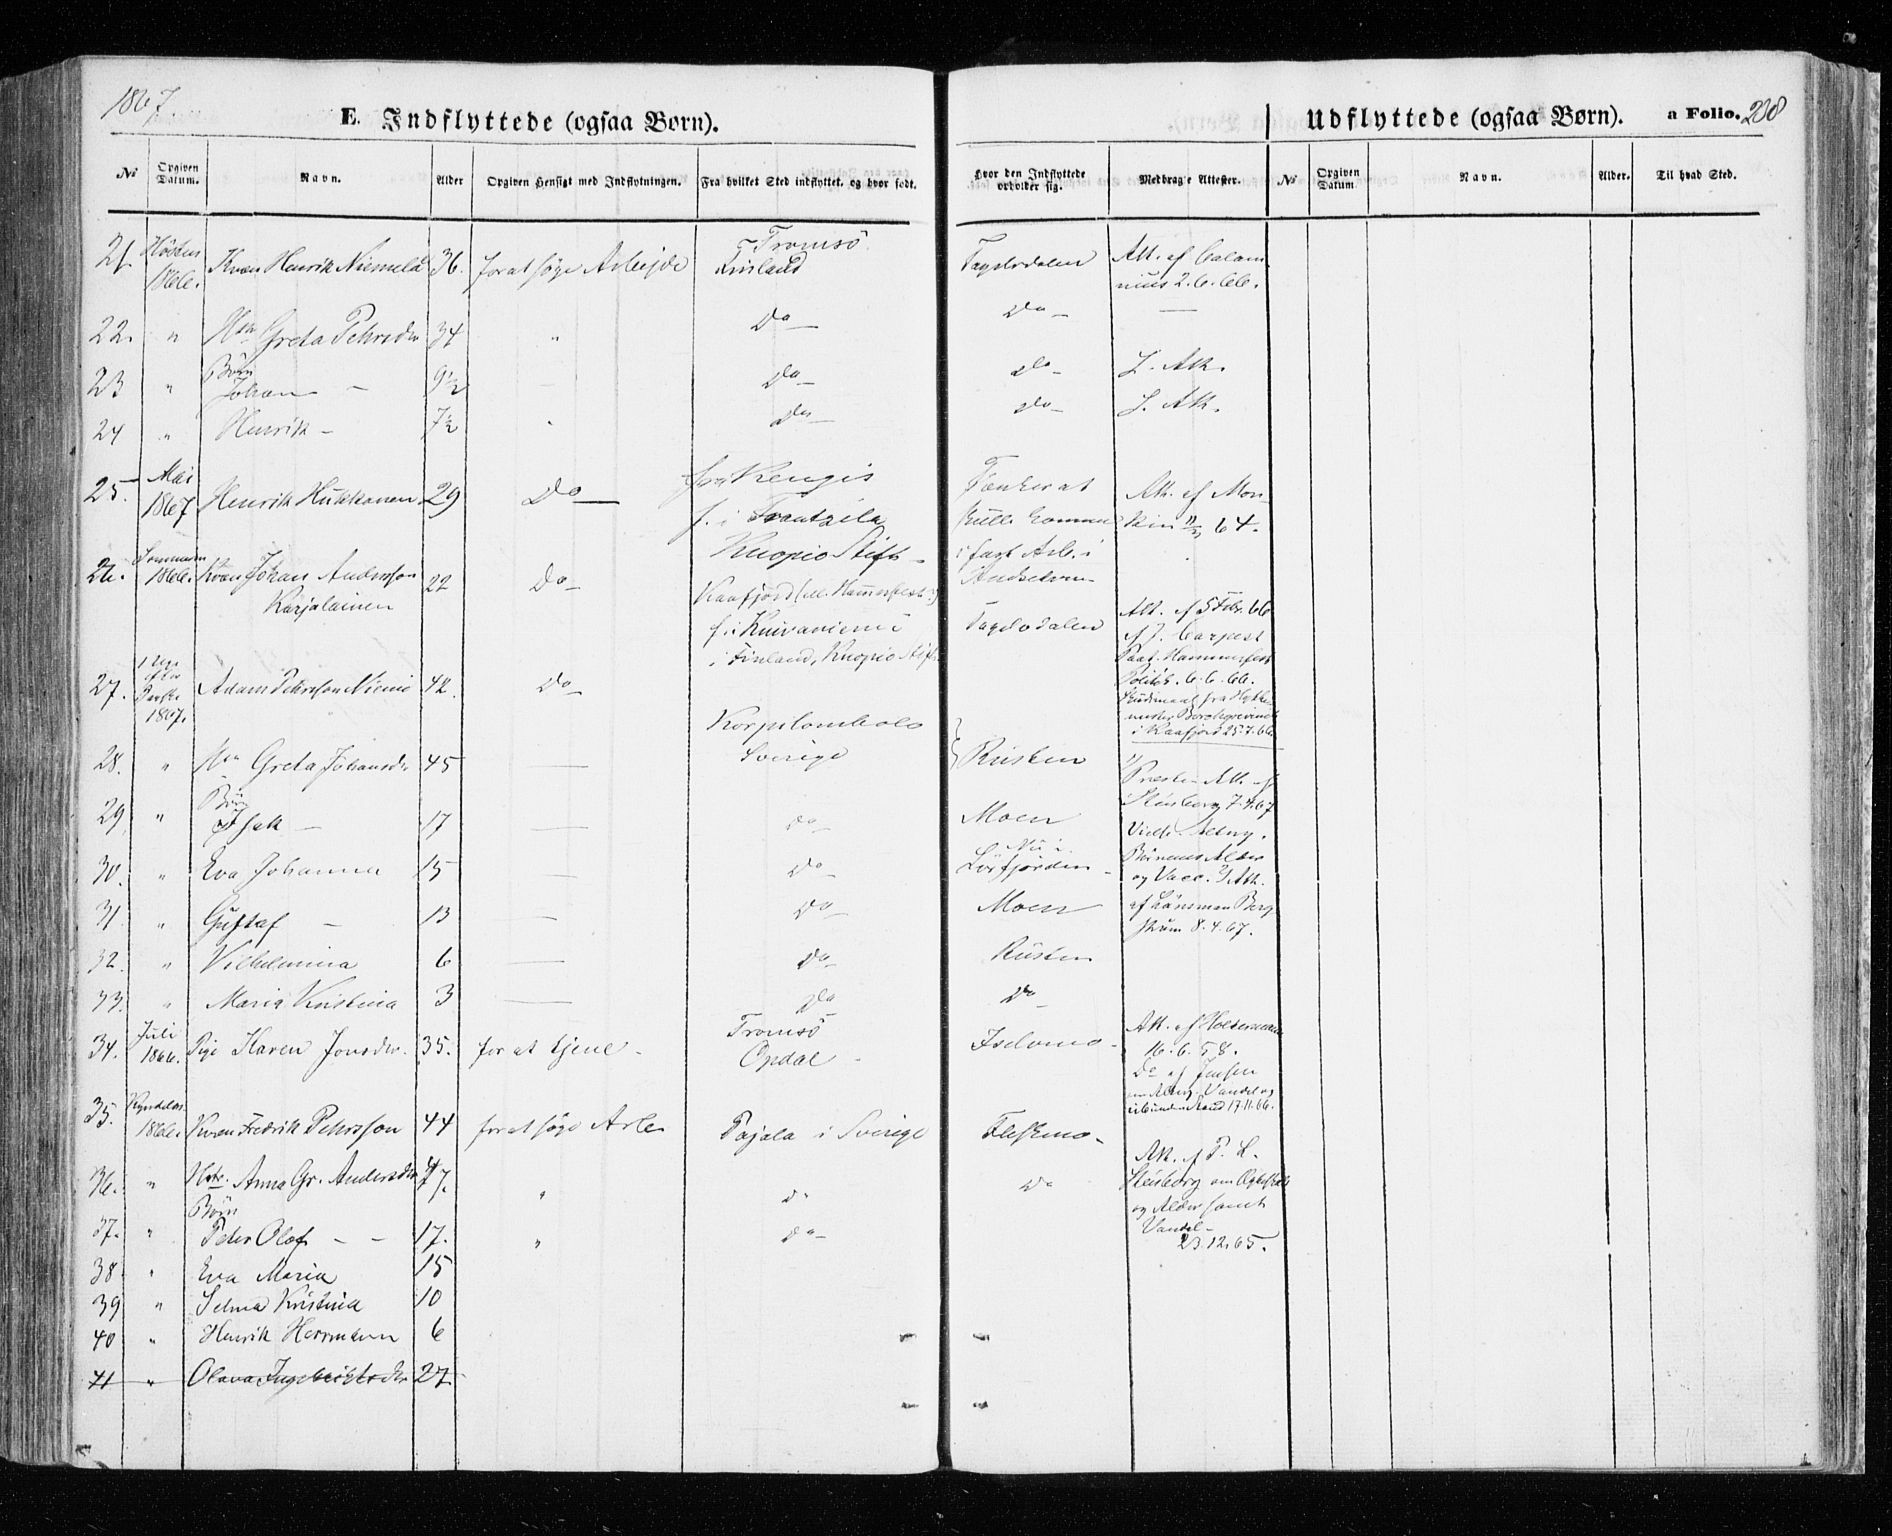 1867.
E. Indflyttede (ogsaa Børn). Udflyttede (ogsaa Børn). a Folio. 208
No Opgiven Datum. Navn. Alder Opgiven Hensigt med Indflytningen. Fra hvilket Sted indflyttet, og hvor født. Hvor den Indflyttede opholder sig. Medbragte Attester. No Opgiven Datum Navn. Alder. Til hvad Sted.
21 Høsten 1866. Kvæn Henrik Niemelä 36. for at søge Arbejde Tromsö Finland Tagelvdalen Att. af Calam
nius 2.6.66.
22. " Hstr Greta Pehrsdr 34 " Do — Do — —
23 " Børn Johan — 9½ — Do — Do — L. Att.
24 " Henrik — 7½ " Do — Do — L. Att.
25. Mai 1867 Henrik Hukkanen 29 Do — fra Kengis
f. i Frantzila
Kuopio Stift — Tænker at
ville komme
i fast Arb. i
Att. af Mon
kin 64.
26. Sommeren 1866. Kvæn Johan Andersson
Karjalainen 22 Do — Kaafjord (ved Hammerfest)
f. i Kuivaniemi
i Finland, Kuopio Stift. Tagelvdalen Att. af 5 Febr. 66
af J. Carpest
Hammerfest
Politik. 6.6.66.
i Kaafjord 25.7.66
27. Paaske 1867. Adam Pehrsson Niemi 42. Do — Korpilombolo
Sverige Rusten
28. " Hstr Greta Johansdr 45 — Att. af
Stenborg 7.4.67
29 " Børn Isak — 17 — Do — Moen
30. " Eva Johanna 15 — Do — Nu i
Lörfjorden — Børnenes Alder
og Vacc. Att.
31. " Gustaf — 13 — Do — Moen af Länsman Berg
ström 8.4.67.
32. " Vilhelmina 6 — Do — Rusten
33. " Maria Kristina 3 — Do Do —
34. Juli 1866. Pige Karen Jonsdr. 35. for at tjene — Tromsö
Opdal — Iselvmo — Att. af Holtermann
16.6.58.
Do af Jensen
om Vandel og
ubunden Stand 17.11.66.
35. Kyndelm. 1866. Kvæn Fredrik Pehrsson 44 for at søge Arb. Pajala i Sverige Fleskmo — Att. af P. L.
36. " Hstr. Anna Gr. Andersdr 47. " Do Do Stenborg om
og Alder samt
Vandel —
23.12.65.
37. " Børn
Peter Olof — — 17. " Do —
38 " Eva Maria 15
39 " Selma Kristina 10
40 " Henrik Herrmann 6
41 " Olava Ingebrigtsdr 27